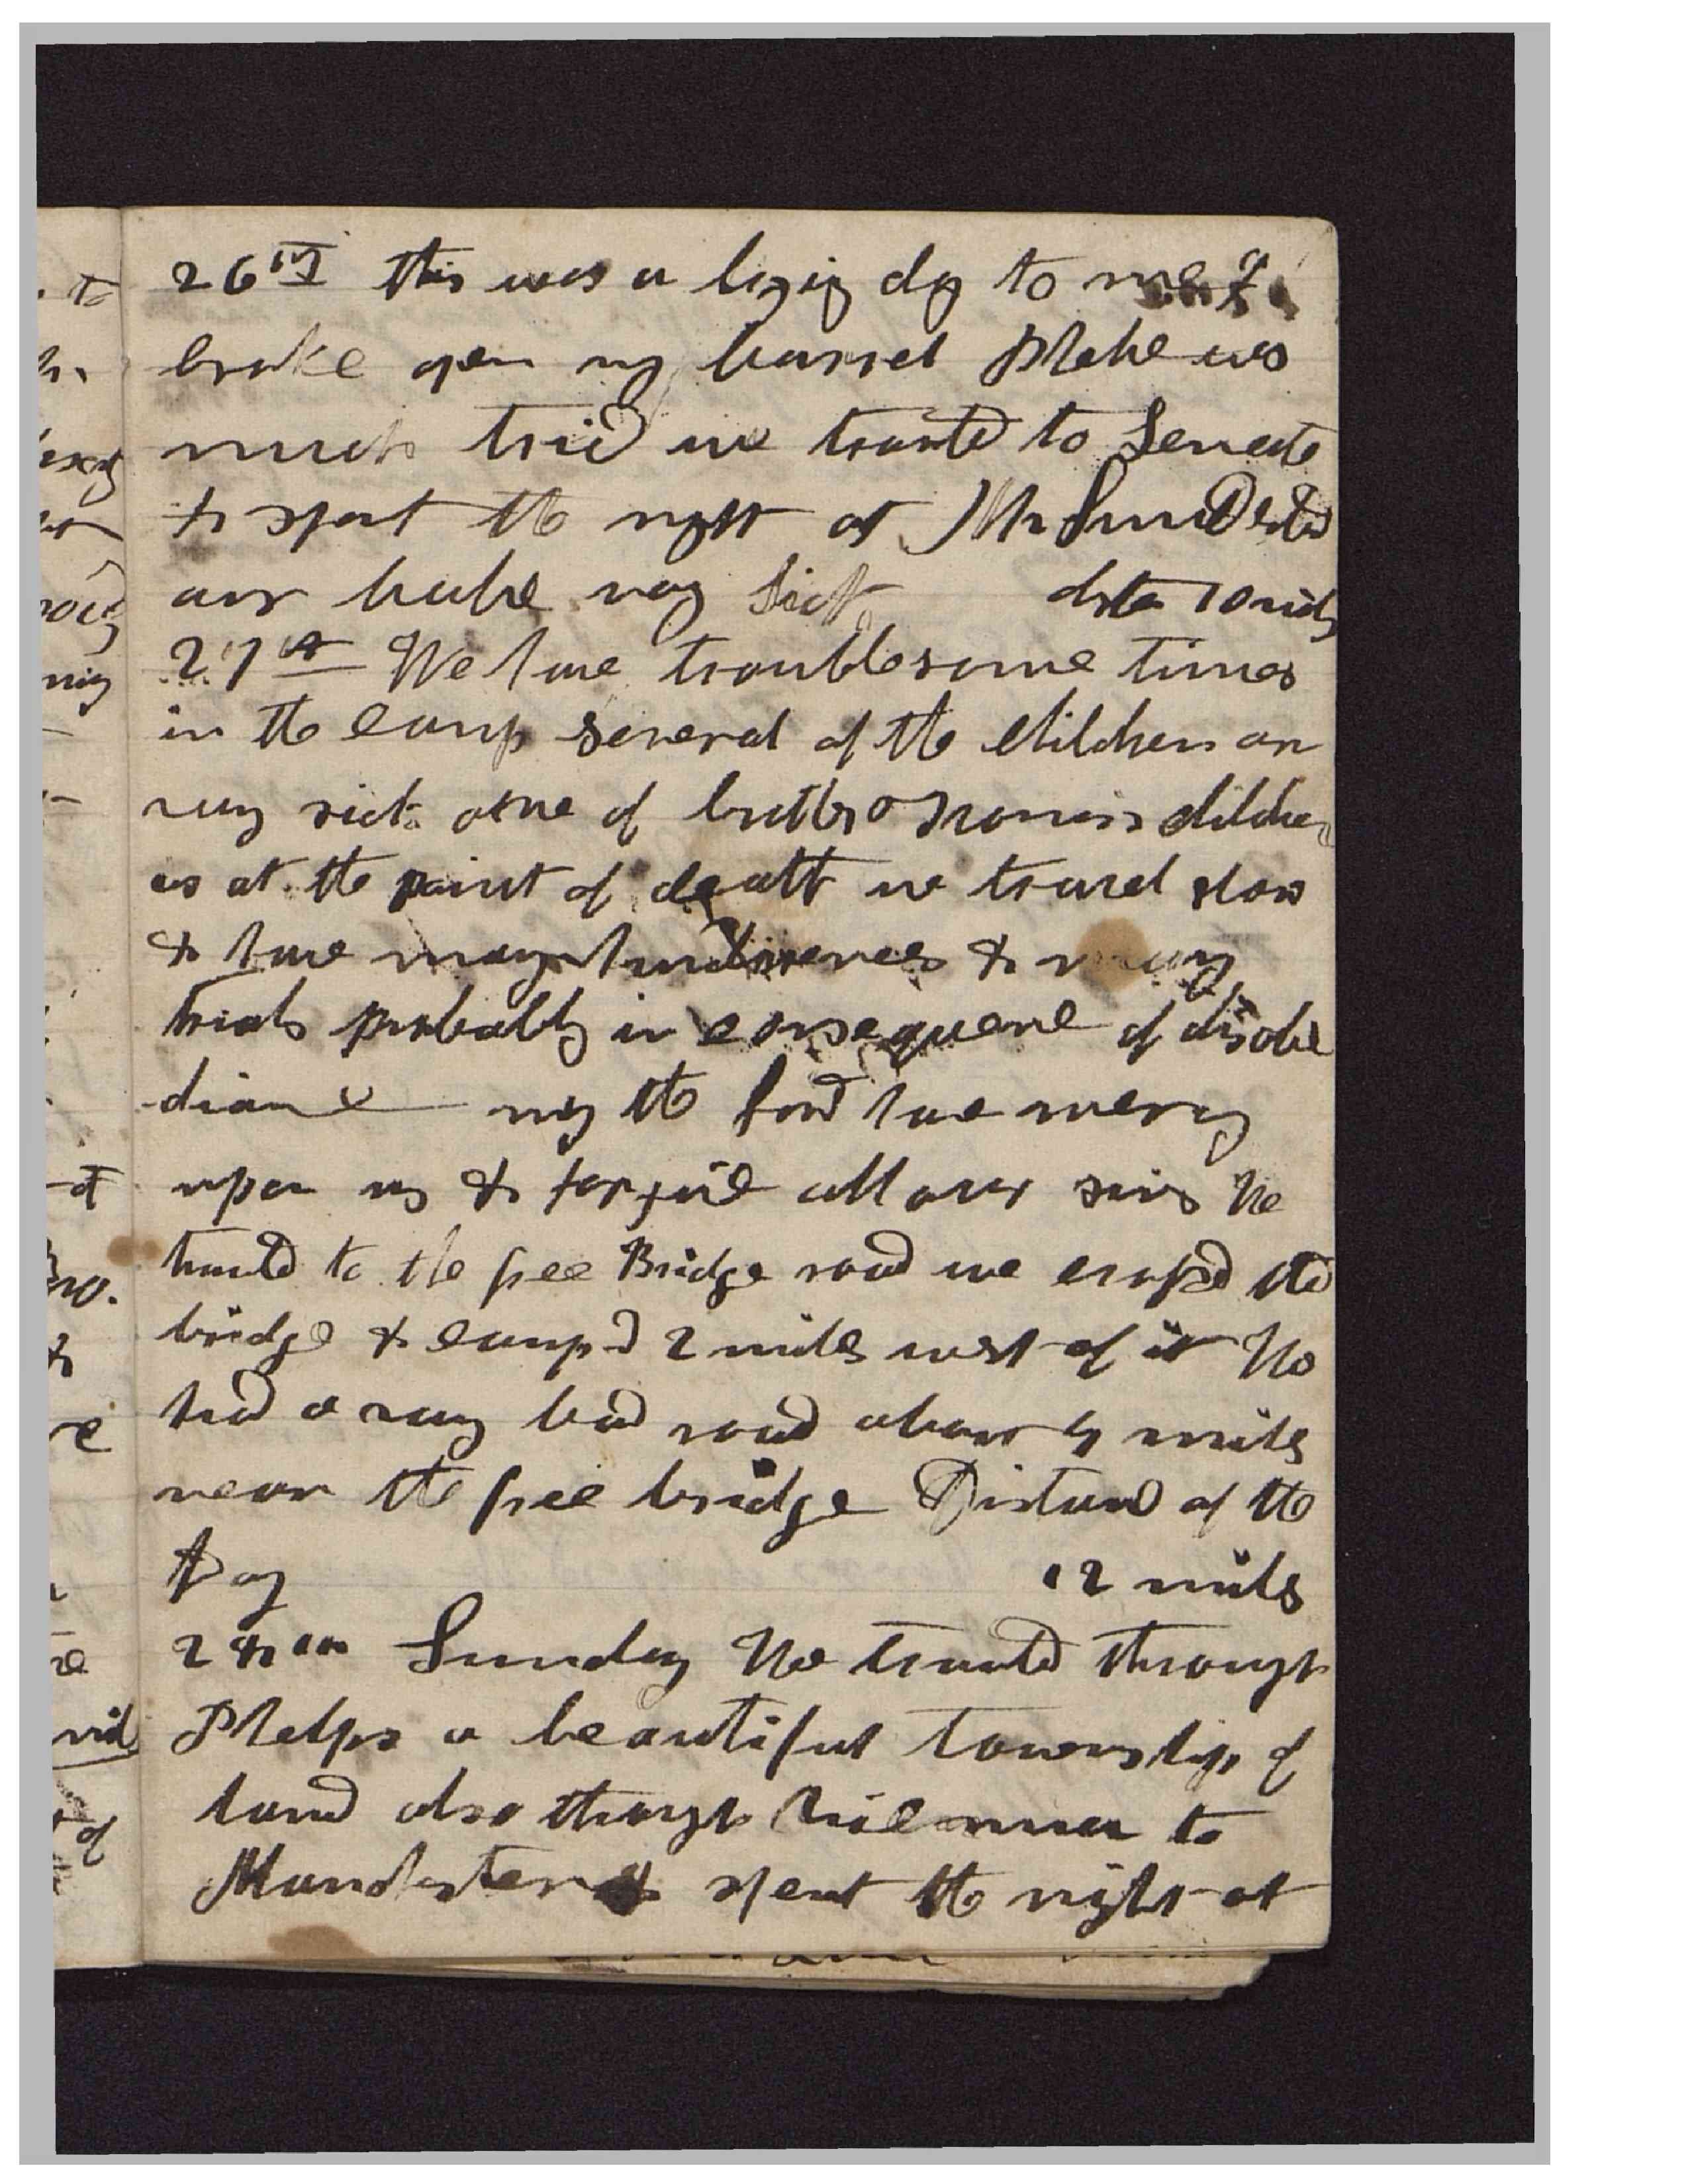 26th this was a lazy day to me I
broke open my barrel Phebe was
much tried we traveld to Seneca
& spent the night at Mr
our babe very sick dista 10 miles
27th We have troublesome times
in the camp several of the children are
very sick one of brother children
is at the point of death we travel slow
& have many hindrences & many
trials probably in consequence of disobe
diance may the Lord have mercy
upon us & forgive all our sins We
traveld to the free Bridge road we crossed the
bridge & campd 2 miles west of it We
had a very bad road about 4 miles
near the free bridge Distance of the
Day 12 miles
28th Sunday We traveld through
Phelps a beautiful township of
land also through to
Manchester & spent the night at